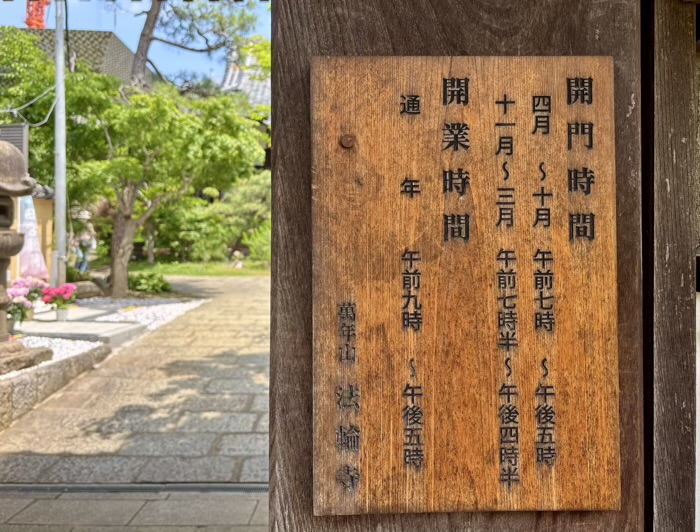 開門時間
四月〜十月 午前七時〜午後五時
十一月〜三月 午前七時半〜午後四時半
開業時間
通年 午前九時〜午後五時
萬年山 法輪寺